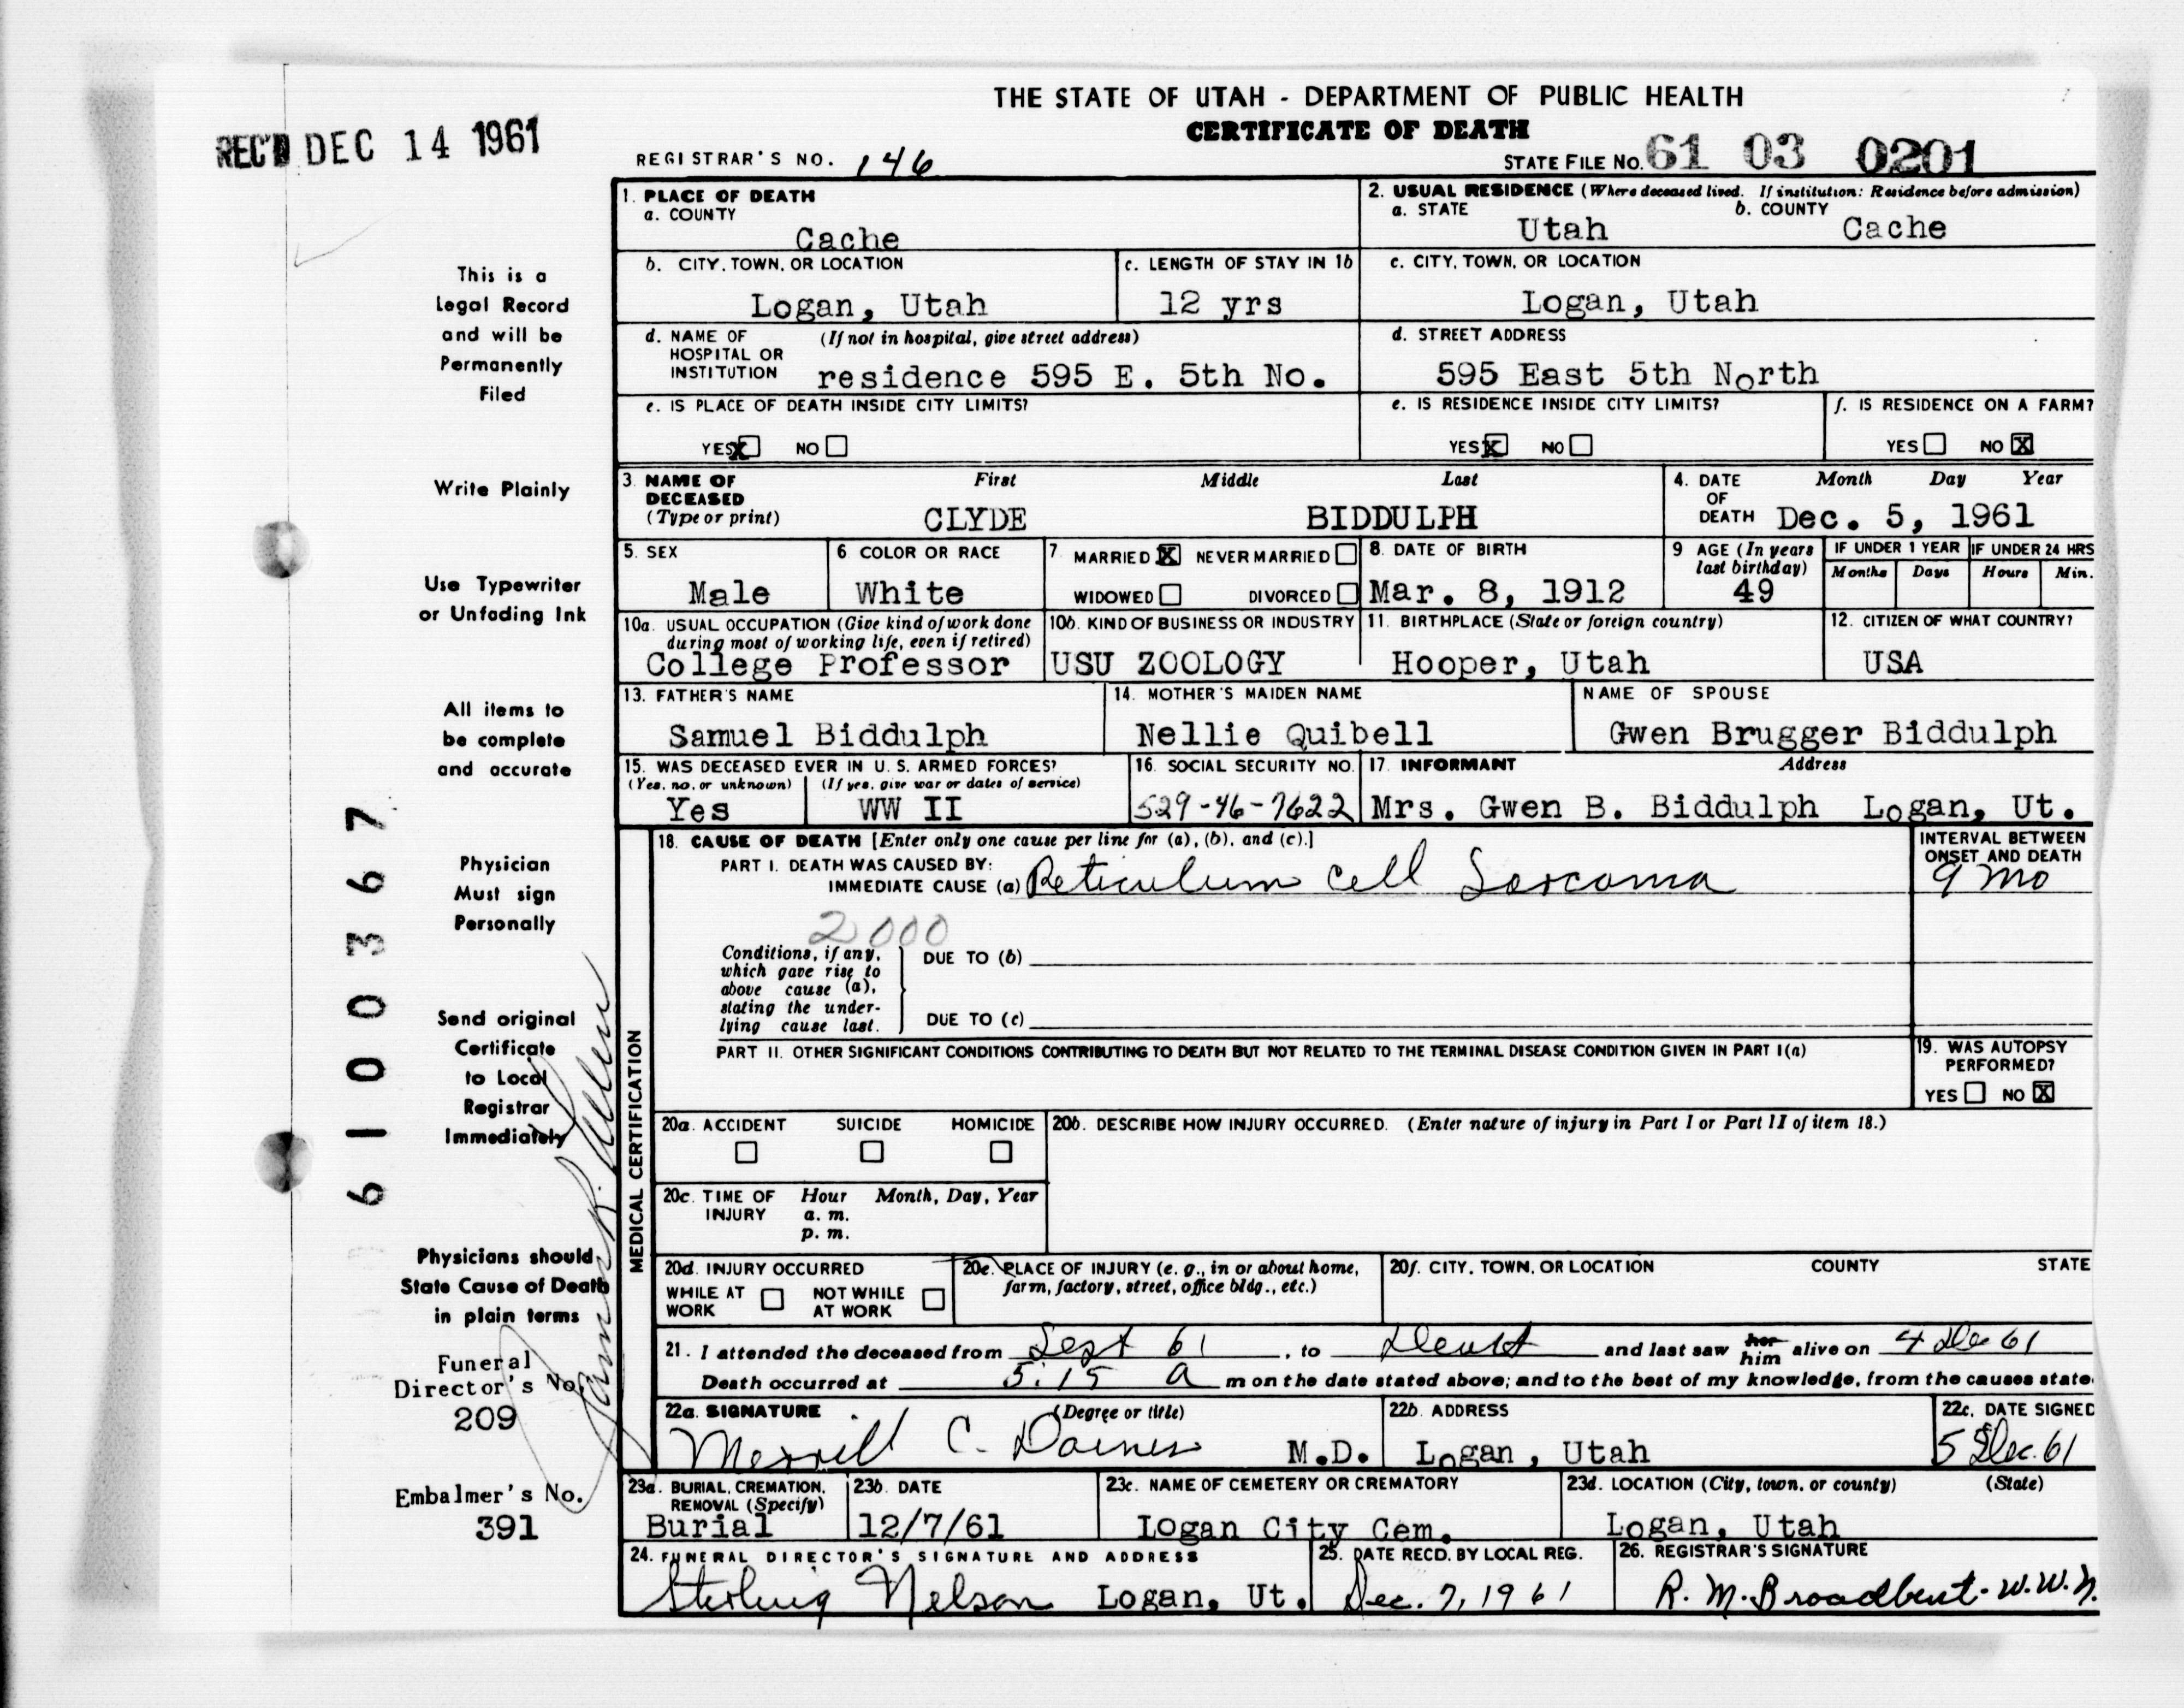 THE STATE OF UTAH - DEPARTMENT OF PUBLIC HEALTH
CERTIFICATE OF DEATH
REC'D DEC 14 1961
REGISTRAR'S NO. 146
STATE FILE NO. 61 03 0201
1. PLACE OF DEATH
a. COUNTY
Cache
2. USUAL RESIDENCE (Where deceased lived. If institution: Residence before admission)
a. STATE b. COUNTY
Utah Cache
b. CITY, TOWN, OR LOCATION
Logan, Utah
c. LENGTH OF STAY IN 1b
12 yrs
c. CITY, TOWN, OR LOCATION
Logan, Utah
d. NAME OF HOSPITAL OR INSTITUTION (If not in hospital, give street address)
residence 595 E. 5th No.
d. STREET ADDRESS
595 East 5th North
e. IS PLACE OF DEATH INSIDE CITY LIMITS?
YES X NO
e. IS RESIDENCE INSIDE CITY LIMITS?
YES X NO
f. IS RESIDENCE ON A FARM?
YES NO X
3. NAME OF DECEASED (Type or print)
First Middle Last
CLYDE BIDDULPH
4. DATE OF DEATH Month Day Year
Dec. 5, 1961
5. SEX
Male
6. COLOR OR RACE
White
7. MARRIED X NEVER MARRIED
WIDOWED DIVORCED
8. DATE OF BIRTH
Mar. 8, 1912
9 AGE (In years last birthday)
49
IF UNDER 1 YEAR IF UNDER 24 HRS
Months Days Hours Min.
10a. USUAL OCCUPATION (Give kind of work done during most of working life, even if retired)
College Professor
10b. KIND OF BUSINESS OR INDUSTRY
USU ZOOLOGY
11. BIRTHPLACE (State or foreign country)
Hooper, Utah
12. CITIZEN OF WHAT COUNTRY?
USA
13. FATHER'S NAME
Samuel Biddulph
14. MOTHER'S MAIDEN NAME
Nellie Quibell
NAME OF SPOUSE
Gwen Brugger Biddulph
15. WAS DECEASED EVER IN U. S. ARMED FORCES?
(Yes, no, or unknown) (If yes, give war or dates of service)
Yes WW II
16. SOCIAL SECURITY NO.
529-46-7622
17. INFORMANT Address
Mrs. Gwen B. Biddulph Logan, Ut.
MEDICAL CERTIFICATION
18. CAUSE OF DEATH [Enter only one cause per line for (a), (b), and (c).]
PART I. DEATH WAS CAUSED BY:
IMMEDIATE CAUSE (a) Reticulum cell Sarcoma
INTERVAL BETWEEN ONSET AND DEATH
9 mo
2000
Conditions, if any, which gave rise to above cause (a), stating the underlying cause last.
DUE TO (b)
DUE TO (c)
PART II. OTHER SIGNIFICANT CONDITIONS CONTRIBUTING TO DEATH BUT NOT RELATED TO THE TERMINAL DISEASE CONDITION GIVEN IN PART I(a)
19. WAS AUTOPSY PERFORMED?
YES NO X
20a. ACCIDENT SUICIDE HOMICIDE
20b. DESCRIBE HOW INJURY OCCURRED. (Enter nature of injury in Part I or Part II of item 18.)
20c. TIME OF INJURY Hour Month, Day, Year
a. m.
p. m.
20d. INJURY OCCURRED
WHILE AT WORK NOT WHILE AT WORK
20e. PLACE OF INJURY (e. g., in or about home, farm, factory, street, office bldg., etc.)
20f. CITY, TOWN, OR LOCATION COUNTY STATE
21. I attended the deceased from Sept 61, to Death and last saw her him alive on 4 Dec 61
Death occurred at 5:15 a m on the date stated above; and to the best of my knowledge, from the causes state
22a. SIGNATURE (Degree or title)
Merrill C. Daines M.D.
22b. ADDRESS
Logan, Utah
22c. DATE SIGNED
5 Dec. 61
23a. BURIAL, CREMATION, REMOVAL (Specify)
Burial
23b. DATE
12/7/61
23c. NAME OF CEMETERY OR CREMATORY
Logan City Cem.
23d. LOCATION (City, town, or county) (State)
Logan, Utah
24. FUNERAL DIRECTOR'S SIGNATURE AND ADDRESS
Sterling Nelson Logan, Ut.
25. DATE RECD. BY LOCAL REG.
Dec. 7, 1961
26. REGISTRAR'S SIGNATURE
R. M. Broadbent - W.W.N.
This is a
Legal Record
and will be
Permanently
Filed
Write Plainly
Use Typewriter
or Unfading Ink
All items to
be complete
and accurate
Physician
Must sign
Personally
Send original
Certificate
to Local
Registrar
Immediately
Physicians should
State Cause of Death
in plain terms
Funeral
Director's No.
209
Embalmer's No.
391
6100367